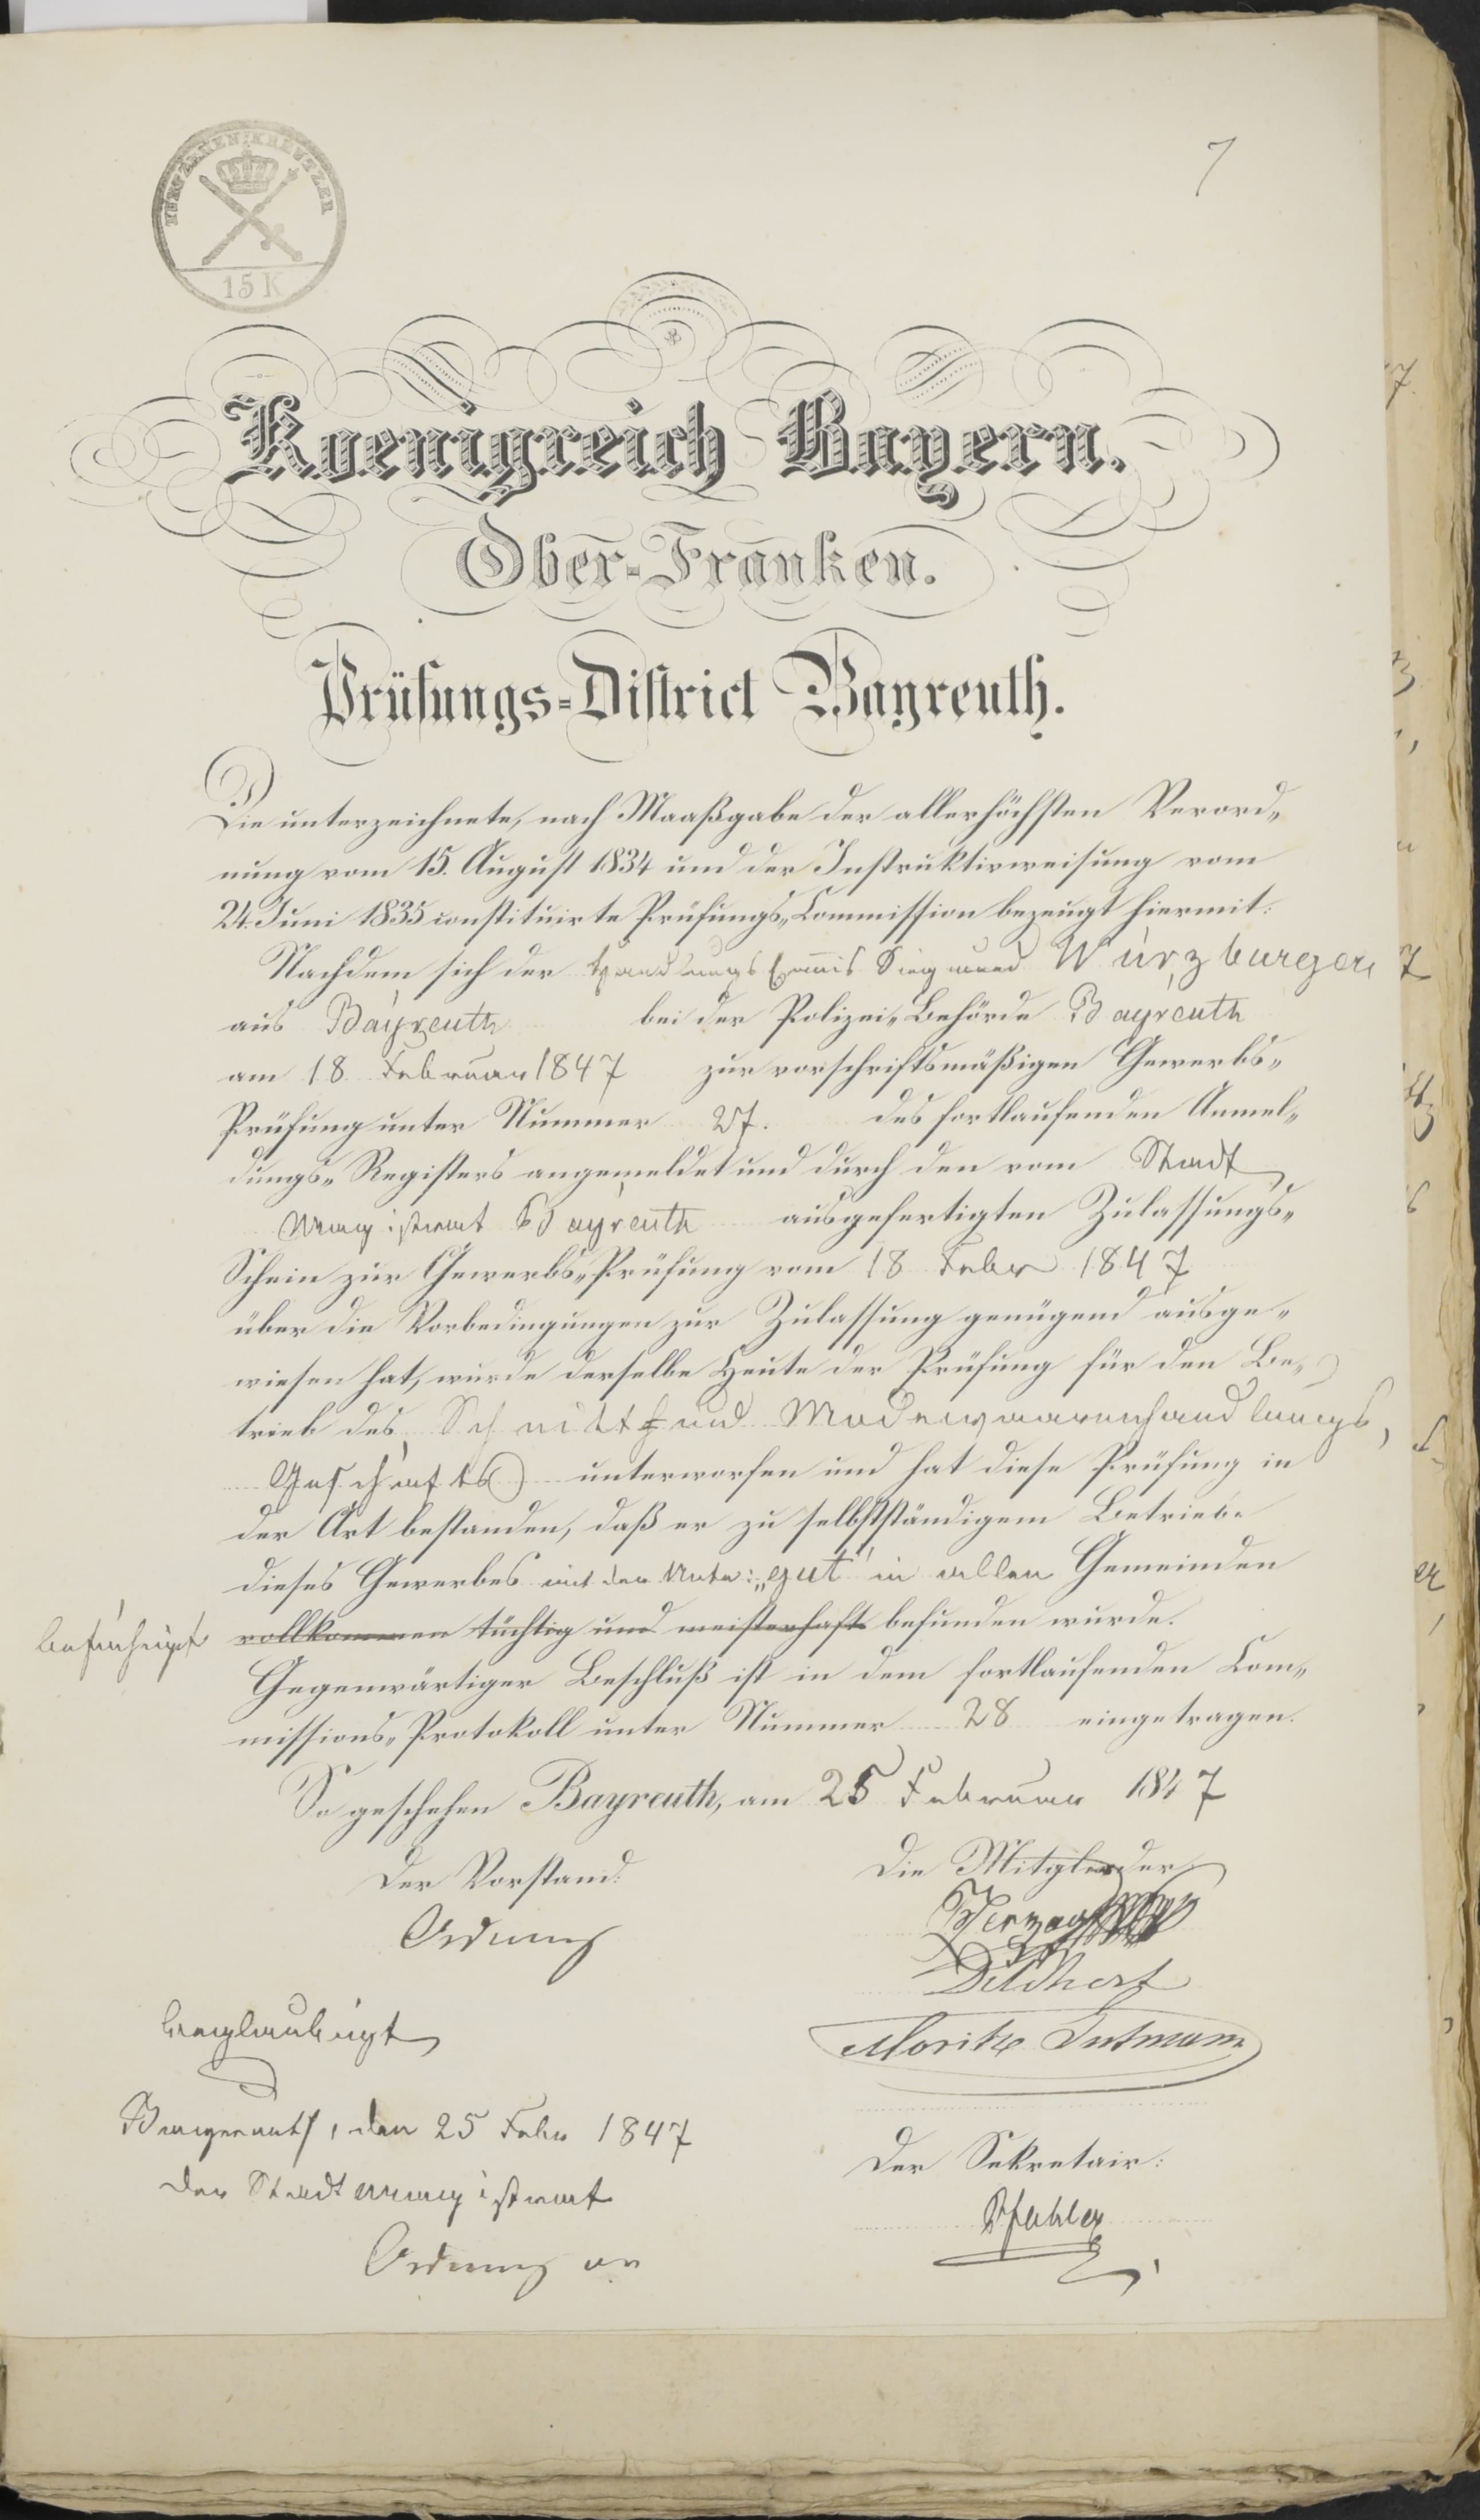 FUNFZEHEN KREUTZER
15 K
7
Koenigreich Bayern.
Ober-Franken.
Prüfungs-District Bayreuth.
Die unterzeichnete, nach Maaßgabe der allerhöchsten Verord„
nung vom 15. August 1834 und der Instruktivweisung vom
24. Juni 1835 constituirte Prüfungs„Commission bezeugt hiermit:
Nachdem sich der Handlungs Commis Siegmund Würzburger
aus Bayreuth bei der Polizei„Behörde Bayreuth
am 18 Februar 1847 zur vorschriftsmäßigen Gewerbs„
Prüfung unter Nummer 27. des fortlaufenden Anmel„
dungs„Registers angemeldet und durch den vom Stadt
Magistrat Bayreuth ausgefertigten Zulassungs„
Schein zur Gewerbs„Prüfung vom 18 Febr 1847
über die Vorbedingungen zur Zulassung genügend ausge„
wiesen hat, wurde derselbe Heute der Prüfung für den Be„
trieb des Schnitt und Modewaarenhandlungs„
Geschäfts unterworfen und hat diese Prüfung in
der Art bestanden, daß er zu selbstständigem Betriebe
dieses Gewerbes mit der Note: „gut" in allen Gemeinden
befähigt vollkommen tüchtig und meisterhaft befunden wurde.
Gegenwärtiger Beschluß ist in dem fortlaufenden Com„
missions„Protokoll unter Nummer 28 eingetragen.
So geschehen Bayreuth, am 25 Februar 1847
Der Vorstand: Die Mitglieder
Herzog
Moritz
beglaubigt
Bayreuth, den 25 Febr 1847
Der Sekretair:
Der Stadtmagistrat
Pfahler